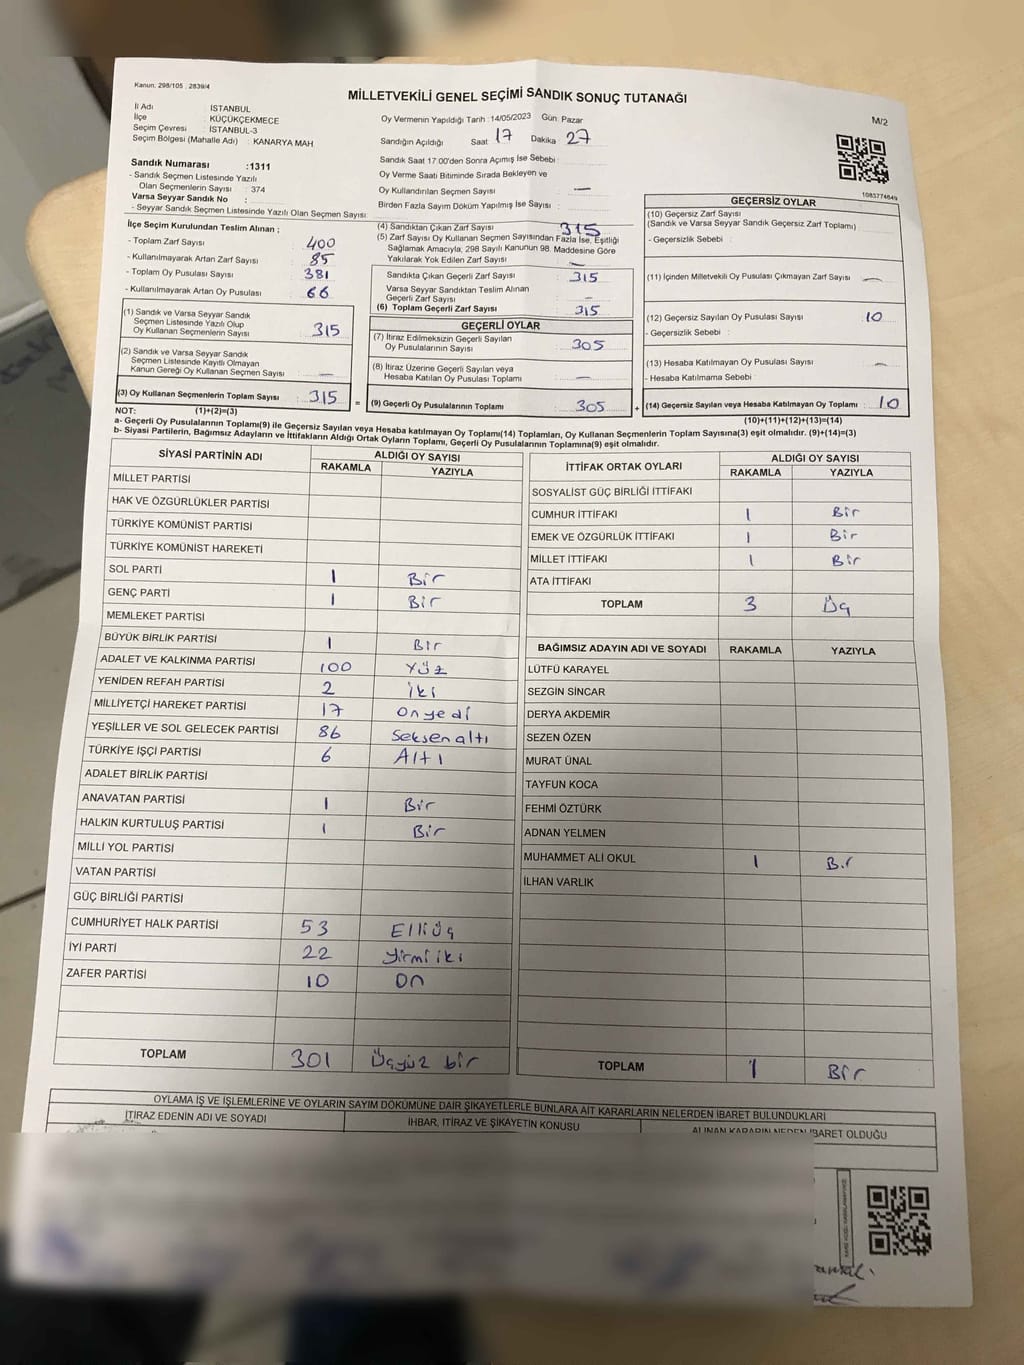 Kanun: 298/105 , 2839/4
MİLLETVEKİLİ GENEL SEÇİMİ SANDIK SONUÇ TUTANAĞI
M/2
İl Adı : İSTANBUL
İlçe : KÜÇÜKÇEKMECE
Seçim Çevresi : İSTANBUL-3
Seçim Bölgesi (Mahalle Adı) : KANARYA MAH
Sandık Numarası :1311
- Sandık Seçmen Listesinde Yazılı
Olan Seçmenlerin Sayısı : 374
Varsa Seyyar Sandık No :
- Seyyar Sandık Seçmen Listesinde Yazılı Olan Seçmen Sayısı :
Oy Vermenin Yapıldığı Tarih :14/05/2023 Gün: Pazar
Sandığın Açıldığı Saat 17 Dakika : 27
Sandık Saat 17:00'den Sonra Açımış İse Sebebi :
Oy Verme Saati Bitiminde Sırada Bekleyen ve
Oy Kullandırılan Seçmen Sayısı : —
Birden Fazla Sayım Döküm Yapılmış İse Sayısı :
1083774849
İlçe Seçim Kurulundan Teslim Alınan ;
- Toplam Zarf Sayısı : 400
- Kullanılmayarak Artan Zarf Sayısı : 85
- Toplam Oy Pusulası Sayısı : 381
- Kullanılmayarak Artan Oy Pusulası : 66
(1) Sandık ve Varsa Seyyar Sandık
Seçmen Listesinde Yazılı Olup
Oy Kullanan Seçmenlerin Sayısı : 315
(2) Sandık ve Varsa Seyyar Sandık
Seçmen Listesinde Kayıtlı Olmayan
Kanun Gereği Oy Kullanan Seçmen Sayısı : —
(3) Oy Kullanan Seçmenlerin Toplam Sayısı : 315 =
(4) Sandıktan Çıkan Zarf Sayısı : 315
(5) Zarf Sayısı Oy Kullanan Seçmen Sayısından Fazla İse, Eşitliği
Sağlamak Amacıyla, 298 Sayılı Kanunun 98. Maddesine Göre
Yakılarak Yok Edilen Zarf Sayısı : —
Sandıkta Çıkan Geçerli Zarf Sayısı : 315
Varsa Seyyar Sandıktan Teslim Alınan
Geçerli Zarf Sayısı : —
(6) Toplam Geçerli Zarf Sayısı : 315
GEÇERLİ OYLAR
(7) İtiraz Edilmeksizin Geçerli Sayılan
Oy Pusulalarının Sayısı : 305
(8) İtiraz Üzerine Geçerli Sayılan veya
Hesaba Katılan Oy Pusulası Toplamı : —
(9) Geçerli Oy Pusulalarının Toplamı : 305 +
GEÇERSİZ OYLAR
(10) Geçersiz Zarf Sayısı
(Sandık ve Varsa Seyyar Sandık Geçersiz Zarf Toplamı)
- Geçersizlik Sebebi :
(11) İçinden Milletvekili Oy Pusulası Çıkmayan Zarf Sayısı : —
(12) Geçersiz Sayılan Oy Pusulası Sayısı : 10
- Geçersizlik Sebebi :
(13) Hesaba Katılmayan Oy Pusulası Sayısı : —
- Hesaba Katılmama Sebebi :
(14) Geçersiz Sayılan veya Hesaba Katılmayan Oy Toplamı : 10
NOT: (1)+(2)=(3)
(10)+(11)+(12)+(13)=(14)
a- Geçerli Oy Pusulalarının Toplam(9) ile Geçersiz Sayılan veya Hesaba katılmayan Oy Toplamı(14) Toplamları, Oy Kullanan Seçmenlerin Toplam Sayısına(3) eşit olmalıdır. (9)+(14)=(3)
b- Siyasi Partilerin, Bağımsız Adayların ve İttifakların Aldığı Ortak Oyların Toplamı, Geçerli Oy Pusulalarının Toplamına(9) eşit olmalıdır.
SİYASİ PARTİNİN ADI ALDIĞI OY SAYISI
RAKAMLA YAZIYLA
MİLLET PARTİSİ
HAK VE ÖZGÜRLÜKLER PARTİSİ
TÜRKİYE KOMÜNİST PARTİSİ
TÜRKİYE KOMÜNİST HAREKETİ
SOL PARTİ 1 Bir
GENÇ PARTİ 1 Bir
MEMLEKET PARTİSİ
BÜYÜK BİRLİK PARTİSİ 1 Bir
ADALET VE KALKINMA PARTİSİ 100 Yüz
YENİDEN REFAH PARTİSİ 2 iki
MİLLİYETÇİ HAREKET PARTİSİ 17 onyedi
YEŞİLLER VE SOL GELECEK PARTİSİ 86 Seksenaltı
TÜRKİYE İŞÇİ PARTİSİ 6 Altı
ADALET BİRLİK PARTİSİ
ANAVATAN PARTİSİ 1 Bir
HALKIN KURTULUŞ PARTİSİ 1 Bir
MİLLİ YOL PARTİSİ
VATAN PARTİSİ
GÜÇ BİRLİĞİ PARTİSİ
CUMHURİYET HALK PARTİSİ 53 Elliüç
İYİ PARTİ 22 Yirmi iki
ZAFER PARTİSİ 10 On
TOPLAM 301 Üçyüz bir
İTTİFAK ORTAK OYLARI ALDIĞI OY SAYISI
RAKAMLA YAZIYLA
SOSYALİST GÜÇ BİRLİĞİ İTTİFAKI
CUMHUR İTTİFAKI 1 Bir
EMEK VE ÖZGÜRLÜK İTTİFAKI 1 Bir
MİLLET İTTİFAKI 1 Bir
ATA İTTİFAKI
TOPLAM 3 Üç
BAĞIMSIZ ADAYIN ADI VE SOYADI RAKAMLA YAZIYLA
LÜTFÜ KARAYEL
SEZGİN SİNCAR
DERYA AKDEMİR
SEZEN ÖZEN
MURAT ÜNAL
TAYFUN KOCA
FEHMİ ÖZTÜRK
ADNAN YELMEN
MUHAMMET ALİ OKUL 1 Bir
İLHAN VARLIK
TOPLAM 1 Bir
OYLAMA İŞ VE İŞLEMLERİNE VE OYLARIN SAYIM DÖKÜMÜNE DAİR ŞİKAYETLERLE BUNLARA AİT KARARLARIN NELERDEN İBARET BULUNDUKLARI
İTİRAZ EDENİN ADI VE SOYADI İHBAR, İTİRAZ VE ŞİKAYETİN KONUSU ALINAN KARARIN NEDEN İBARET OLDUĞU